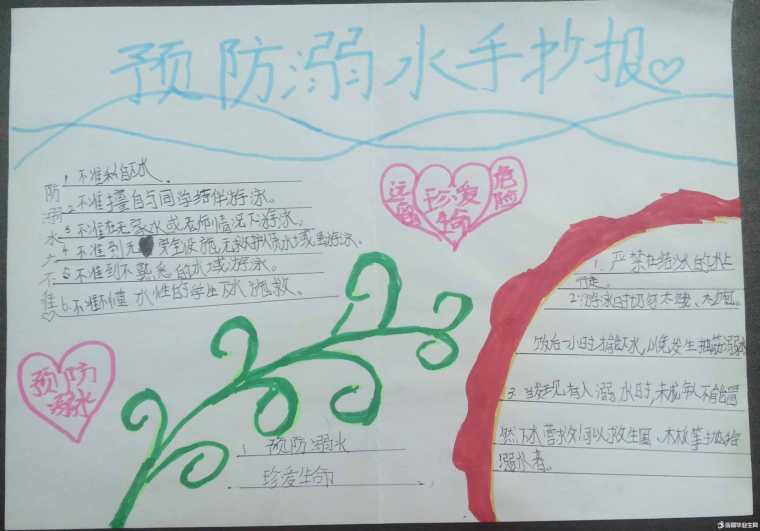 预防溺水手抄报
防溺水六不准
1. 不准私自下水。
2. 不准擅自与同学结伴游泳。
3 不准在无家长或老师情况下游泳。
4 不准到无安全设施、无救护人员水域游泳.
5 不准到不熟悉的水域游泳。
6. 不准不懂水性的学生下水施救。
远离
珍爱
生命
危险
预防
溺水
预防溺水
珍爱生命
1. 严禁在结冰的冰上
行走。
2. 游泳时切勿太饿、太饱。
饭后一小时才能下水,以免发生抽筋溺水
3. 当发现有人溺水时,未成年人不能冒
然下水营救,可以救生圈、木板等
溺水者。
尚额毕业生网